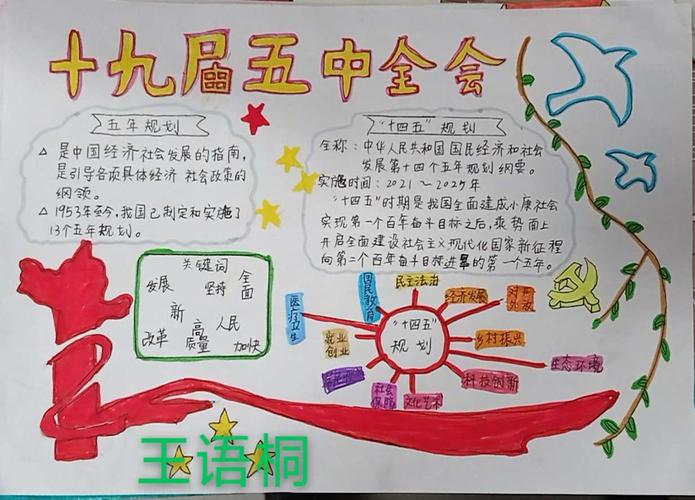 十九届五中全会
五年规划
△ 是中国经济社会发展的指南,
是引导各项具体经济 社会政策的
纲领。
△ 1953年至今,我国已制定和实施了
13个五年规划。
"十四五"规划
全称:中华人民共和国国民经济和社会
发展第十四个五年规划纲要。
实施时间:2021～2025年
"十四五"时期是我国全面建成小康社会
实现第一个百年奋斗目标之后,乘势而上
开启全面建设社会主义现代化国家新征程
向第二个百年奋斗目标进军的第一个五年。
关键词
发展
坚持
全面
新
高质量
人民
改革
加快
"十四五"
规划
医疗卫生
国民教育
民主法治
经济发展
对外
乡村振兴
生态环境
科技创新
文化艺术
社会
保障
就业
创业
王语桐